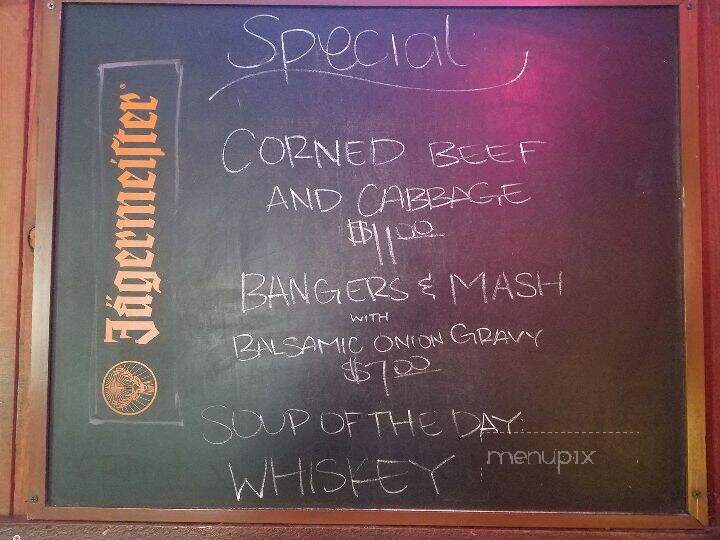 Special
Jägermeister®
CORNED BEEF
AND CABBAGE
$11.00
BANGERS & MASH
WITH
BALSAMIC ONION GRAVY
$7.00
SOUP OF THE DAY:
WHISKEY
menupix